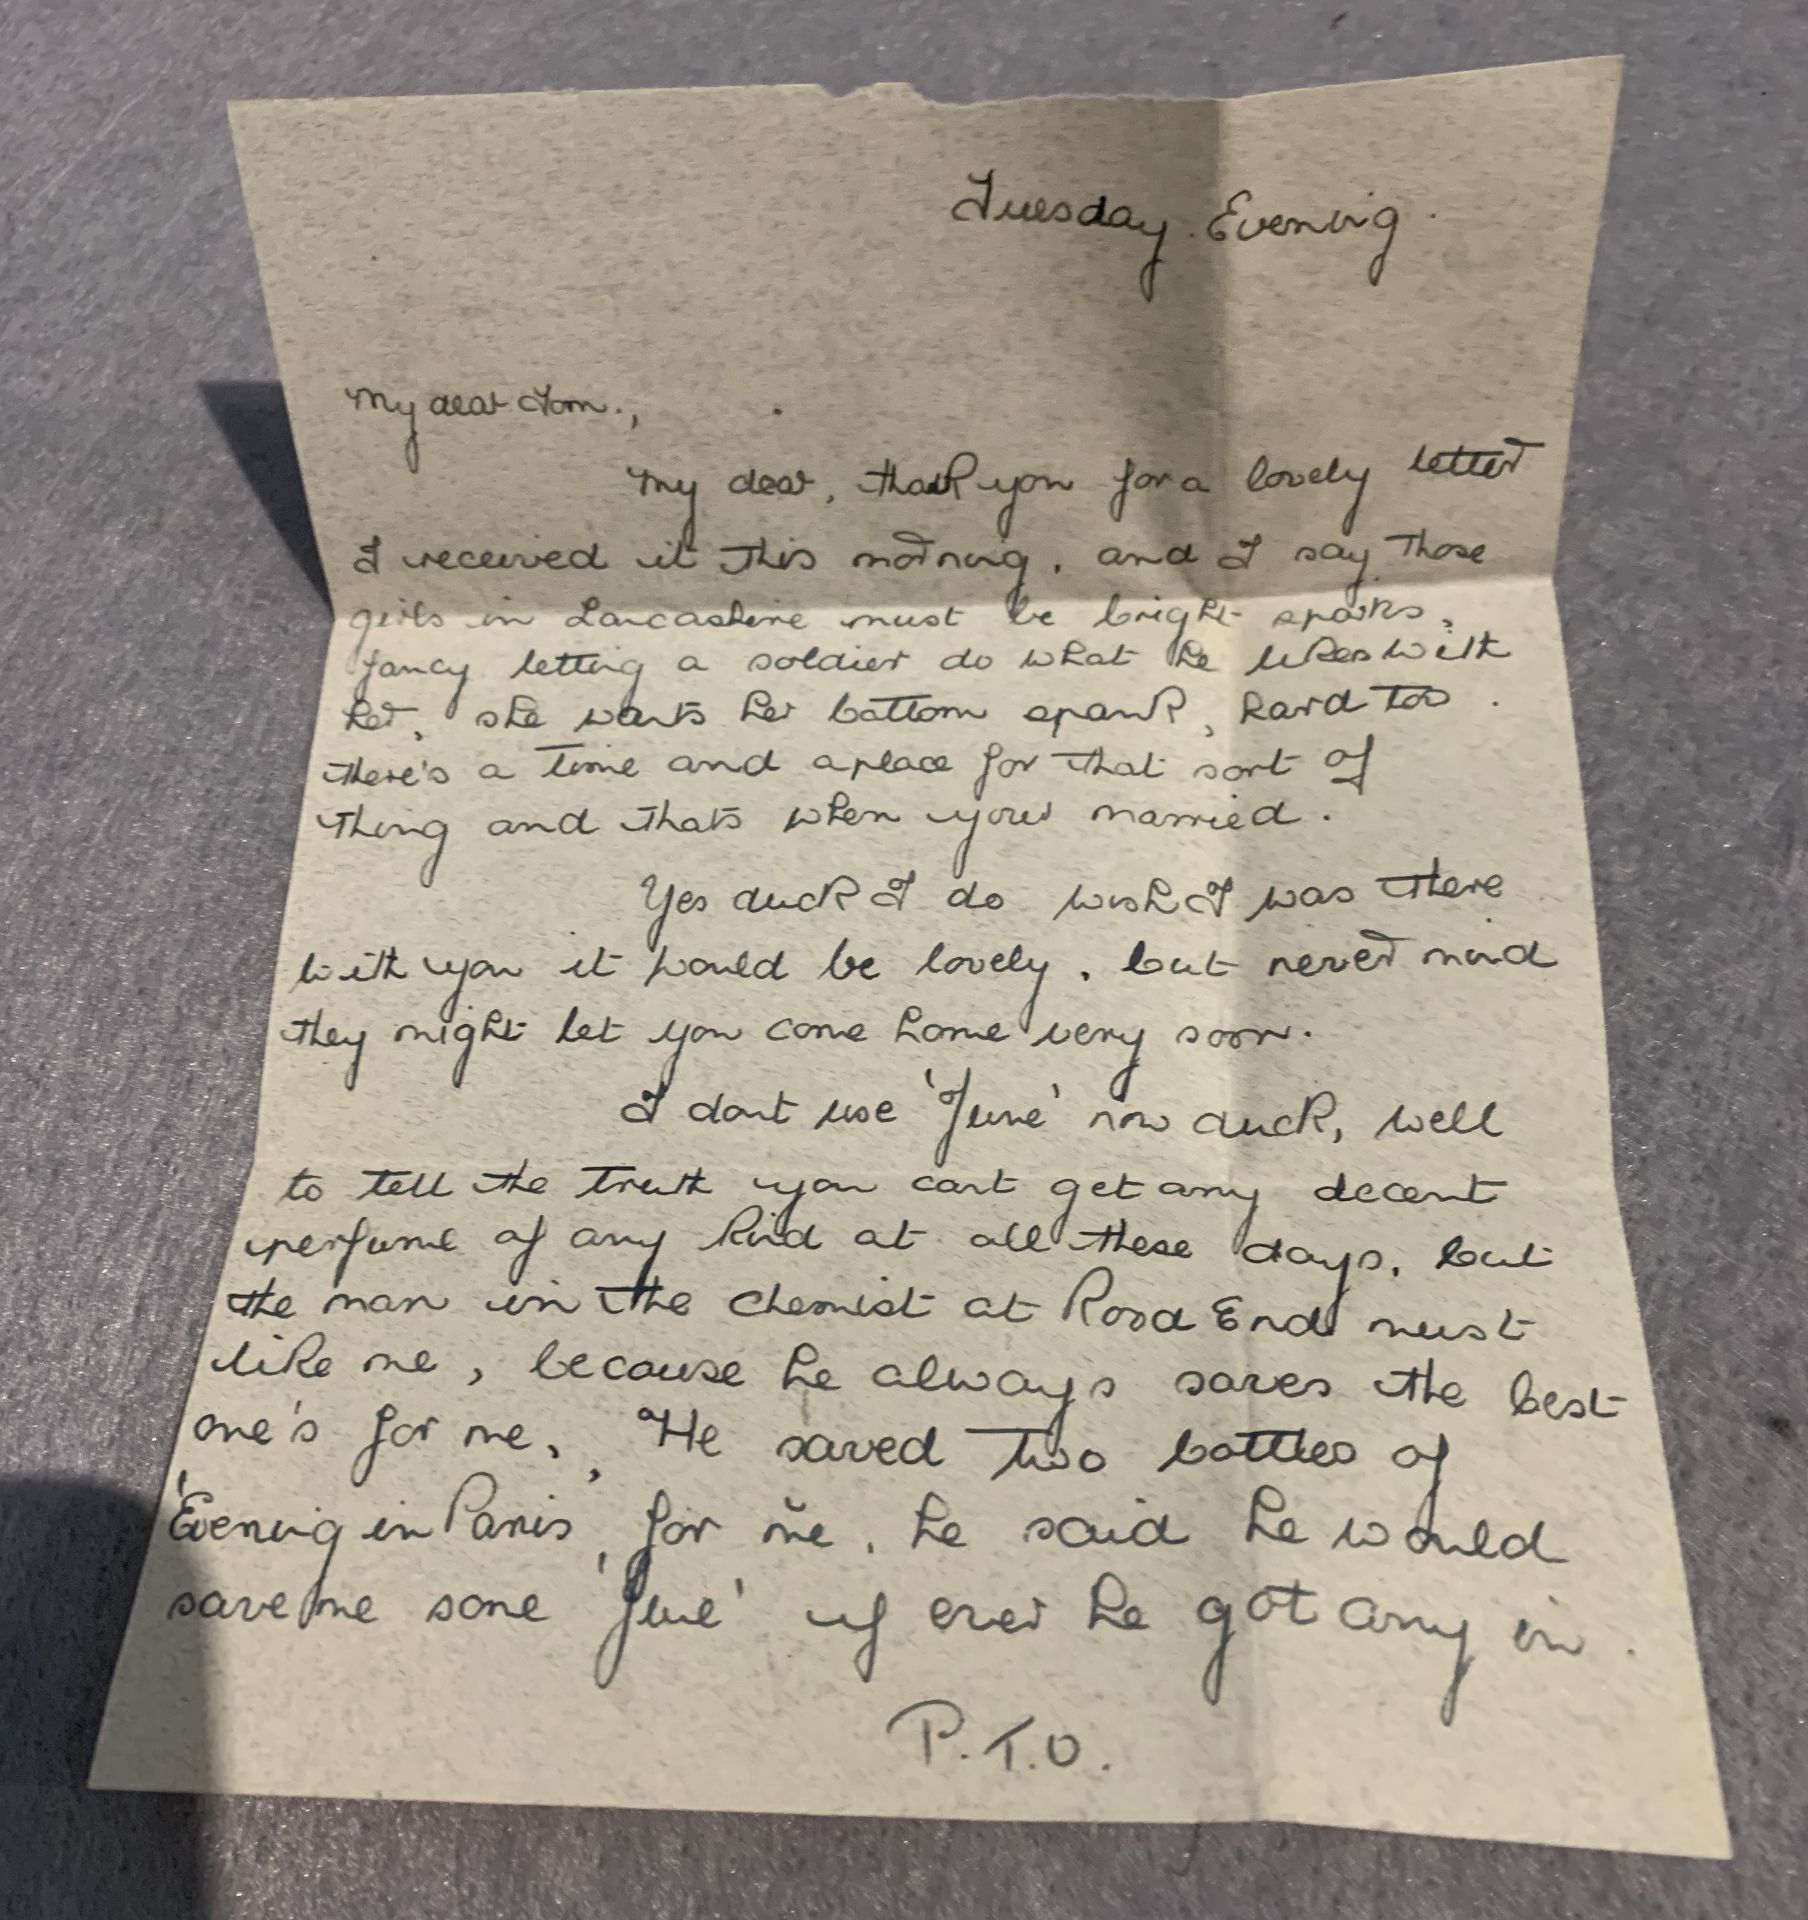 Tuesday. Evening.
My dear Tom.,
My dear, thank you for a lovely letter
I received it this morning, and I say those
girls in Lancashire must be bright sparks,
fancy letting a soldier do what he likes with
her, she wants her bottom spank, hard too.
there's a time and a place for that sort of
thing and thats when your married.
Yes duck I do wish I was there
with you it would be lovely, but never mind
they might let you come home very soon.
I dont use 'June' now duck, well
to tell the truth you cant get any decent
perfume of any kind at all these days, but
the man in the chemist at Road End must
like me, because he always saves the best
one's for me,, He saved two bottles of
'Evening in Paris, for me, he said he would
save me some 'June' if ever he got any in.
P.T.O.